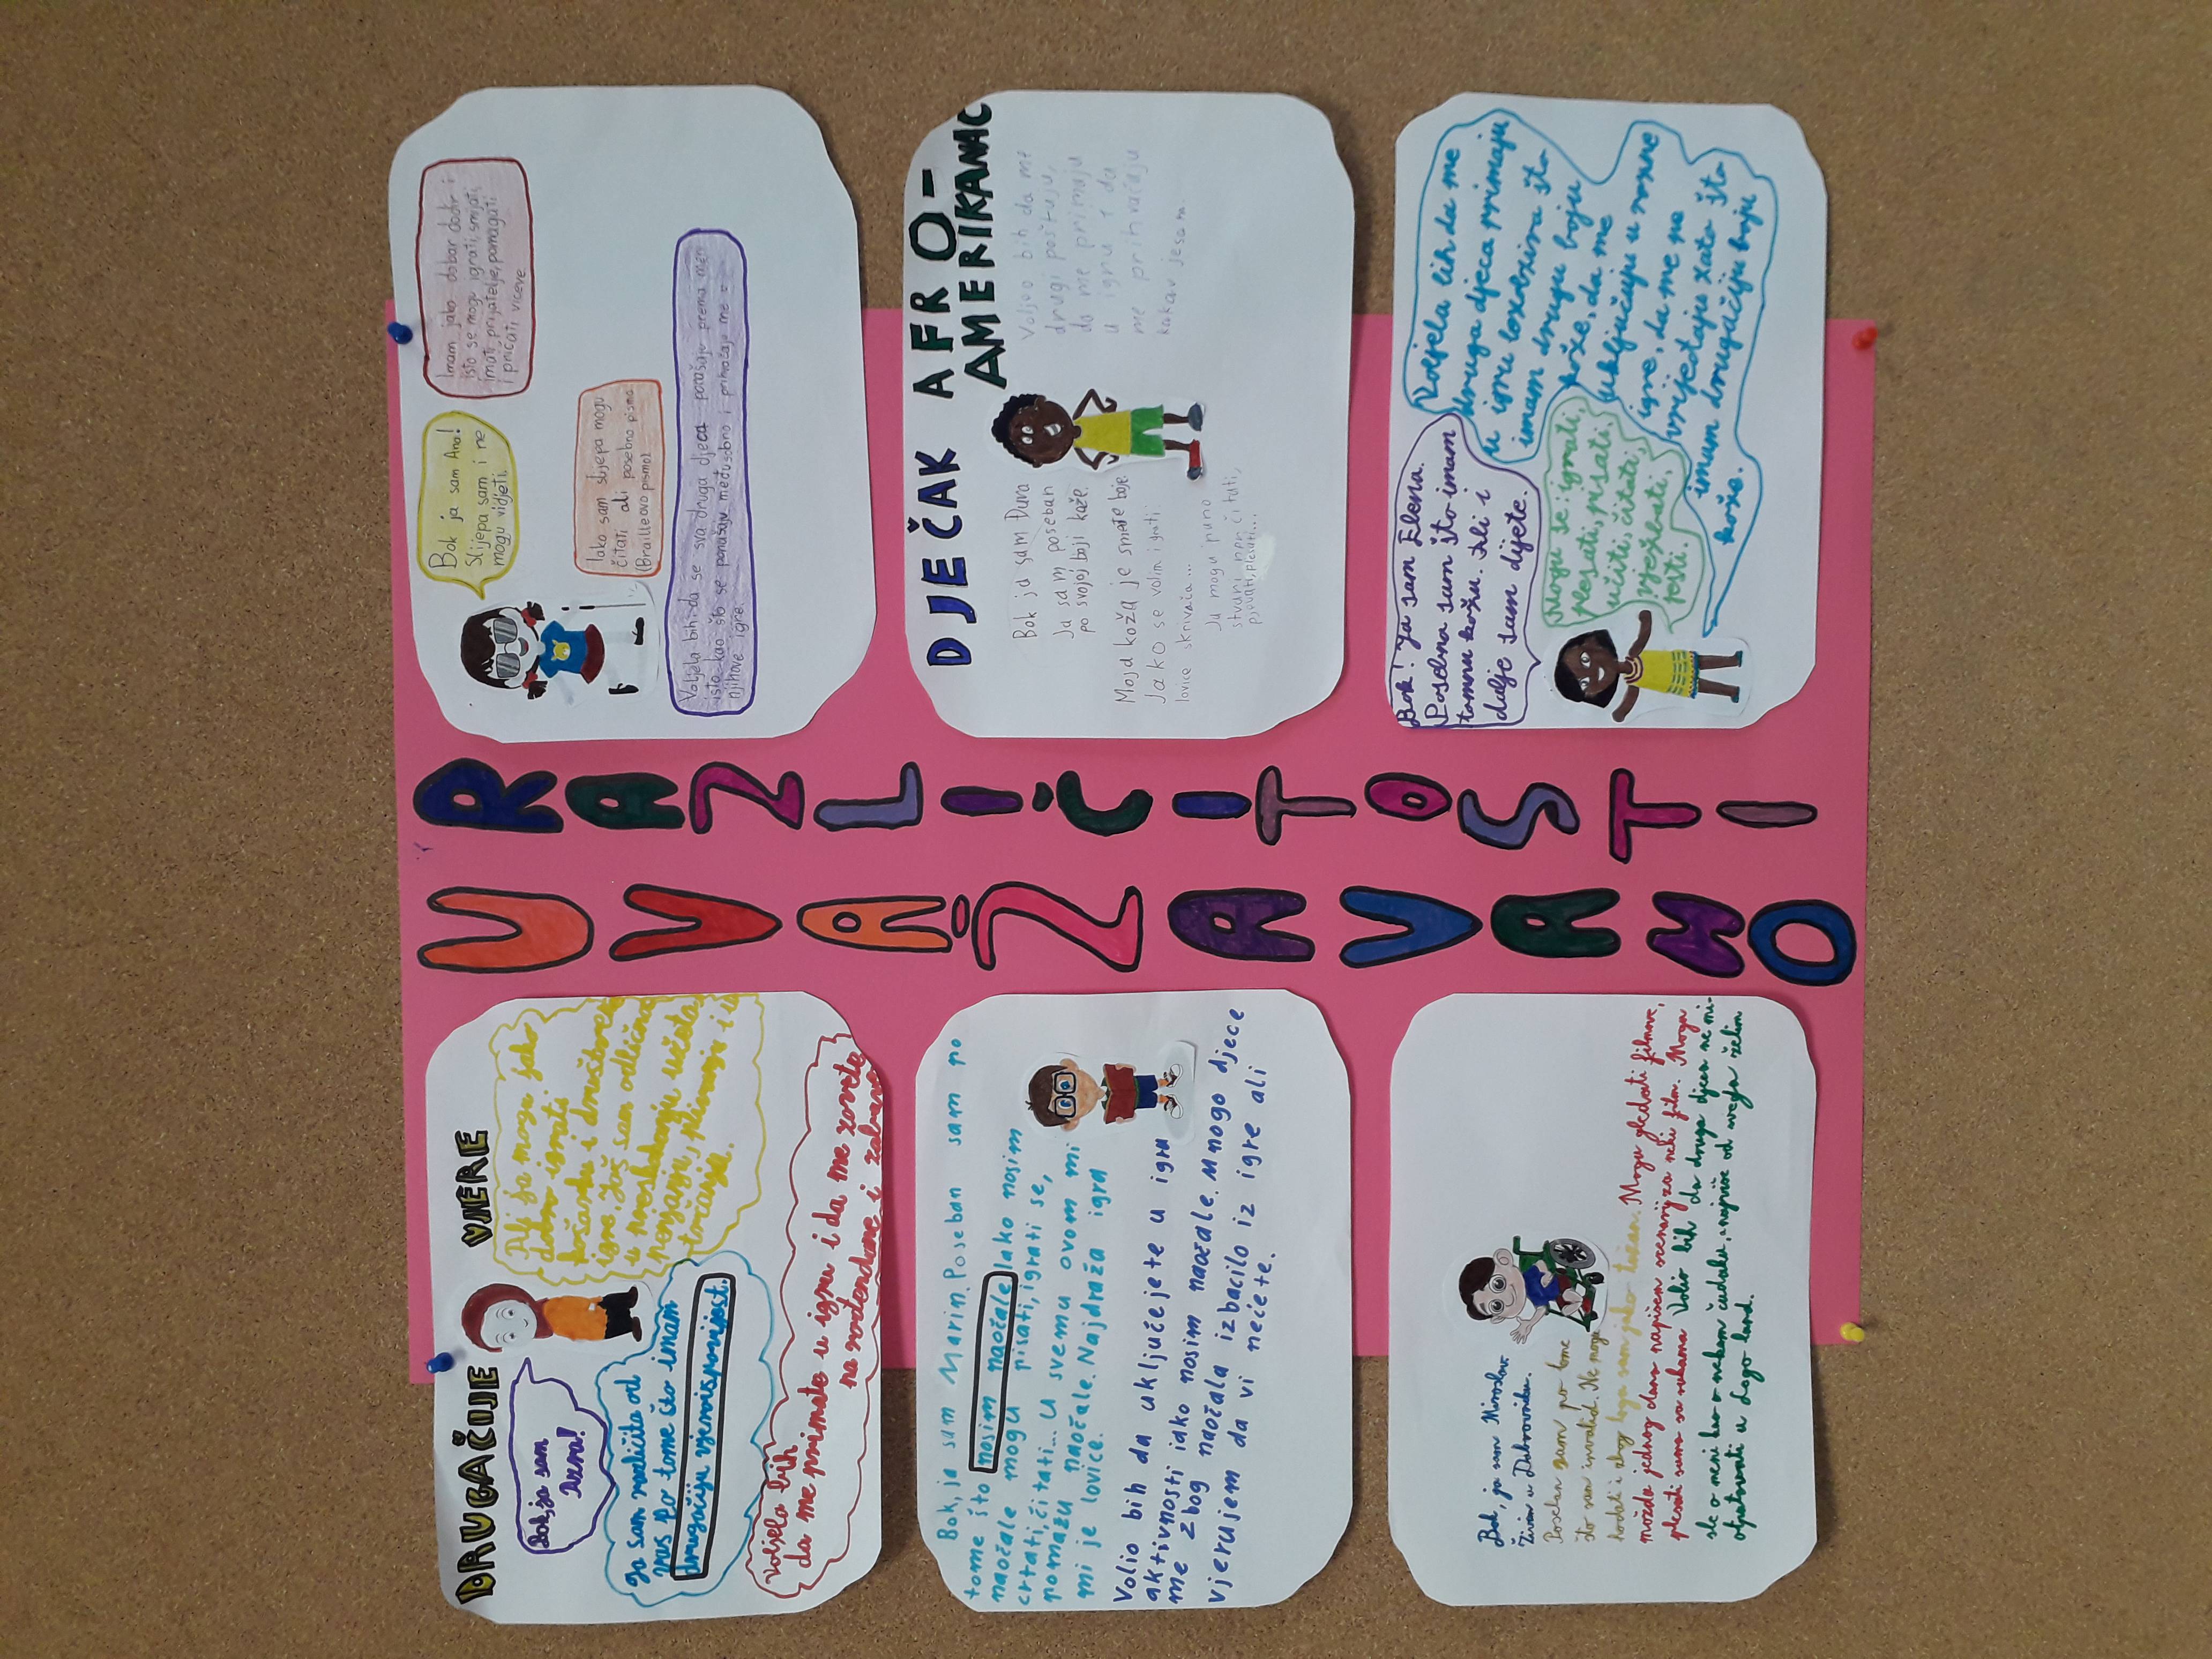 UVAŽAVAMO
RAZLIČITOSTI
DRUGAČIJE VJERE
Bok, ja sam
Ali ja mogu jako
dobro igrati
košarku i društvene
igre. Još sam odlična
u preskakanju užeta
ronjenju, plivanju i u
trčanju.
Ja sam različita od
vas po tome što imam
drugačiju vjeroispovijest.
Voljela bih
da me primate u igru i da me zovete
na rođendane i zabave
Bok, ja sam Marin. Poseban sam po
tome što nosim naočale. Iako nosim
naočale mogu pisati, igrati se,
crtati, čitati... U svemu ovom mi
pomažu naočale. Najdraža igra
mi je lovice.
Volio bih da uključejete u igru
aktivnosti iako nosim naočale. Mnogo djece
me zbog naočala izbacilo iz igre ali
vjerujem da vi nećete.
Bok, ja sam Miroslav
Živim u Dubrovniku.
Poseban sam po tome
što sam invalid. Ne mogu
hodati i zbog toga sam jako tužan. Mogu gledati filmove,
možda jednog dana napišem scenarij za neki film. Mogu
plesati samo sa rukama. Volio bih da druga djeca ne mi-
sle o meni kao o nekom čudaku, a najviše od svega želim
otputovati u Lego land.
Bok ja sam Ana!
Slijepa sam i ne
mogu vidjeti.
Imam jako dobar dodir i
isto se mogu igrati, smijati,
imati prijatelje, pomagati
i pričati viceve.
Iako sam slijepa mogu
čitati ali posebno pismo.
(Brailleovo pismo).
Voljela bih da se sva druga djeca ponašaju prema meni
isto kao što se ponašaju međusobno i prihvaćaju me u
njihove igre.
DJEČAK AFRO-
AMERIKANAC
Bok ja sam Đuro
Ja sam poseban
po svojoj boji kože.
Moja koža je smeđe boje
Jako se volim igrati
lovice skrivača...
Ja mogu puno
stvari npr. čitati,
pjevati, plesati...
Voljeo bih da me
drugi poštuju,
da me primaju
u igru i da
me prihvaćaju
kakav jesam.
Bok! Ja sam Elena.
Posebna sam što imam
tamnu kožu. Ali i
dalje sam dijete.
Mogu se: igrati,
plesati, pisati,
učiti, čitati,
vježbati,
jesti.
Voljela bih da me
druga djeca primaju
u igru bez obzira što
imam drugu boju
kože, da me
uključuju u razne
igre, da me ne
vrijeđaju zato što
imam drugačiju boju
kože.